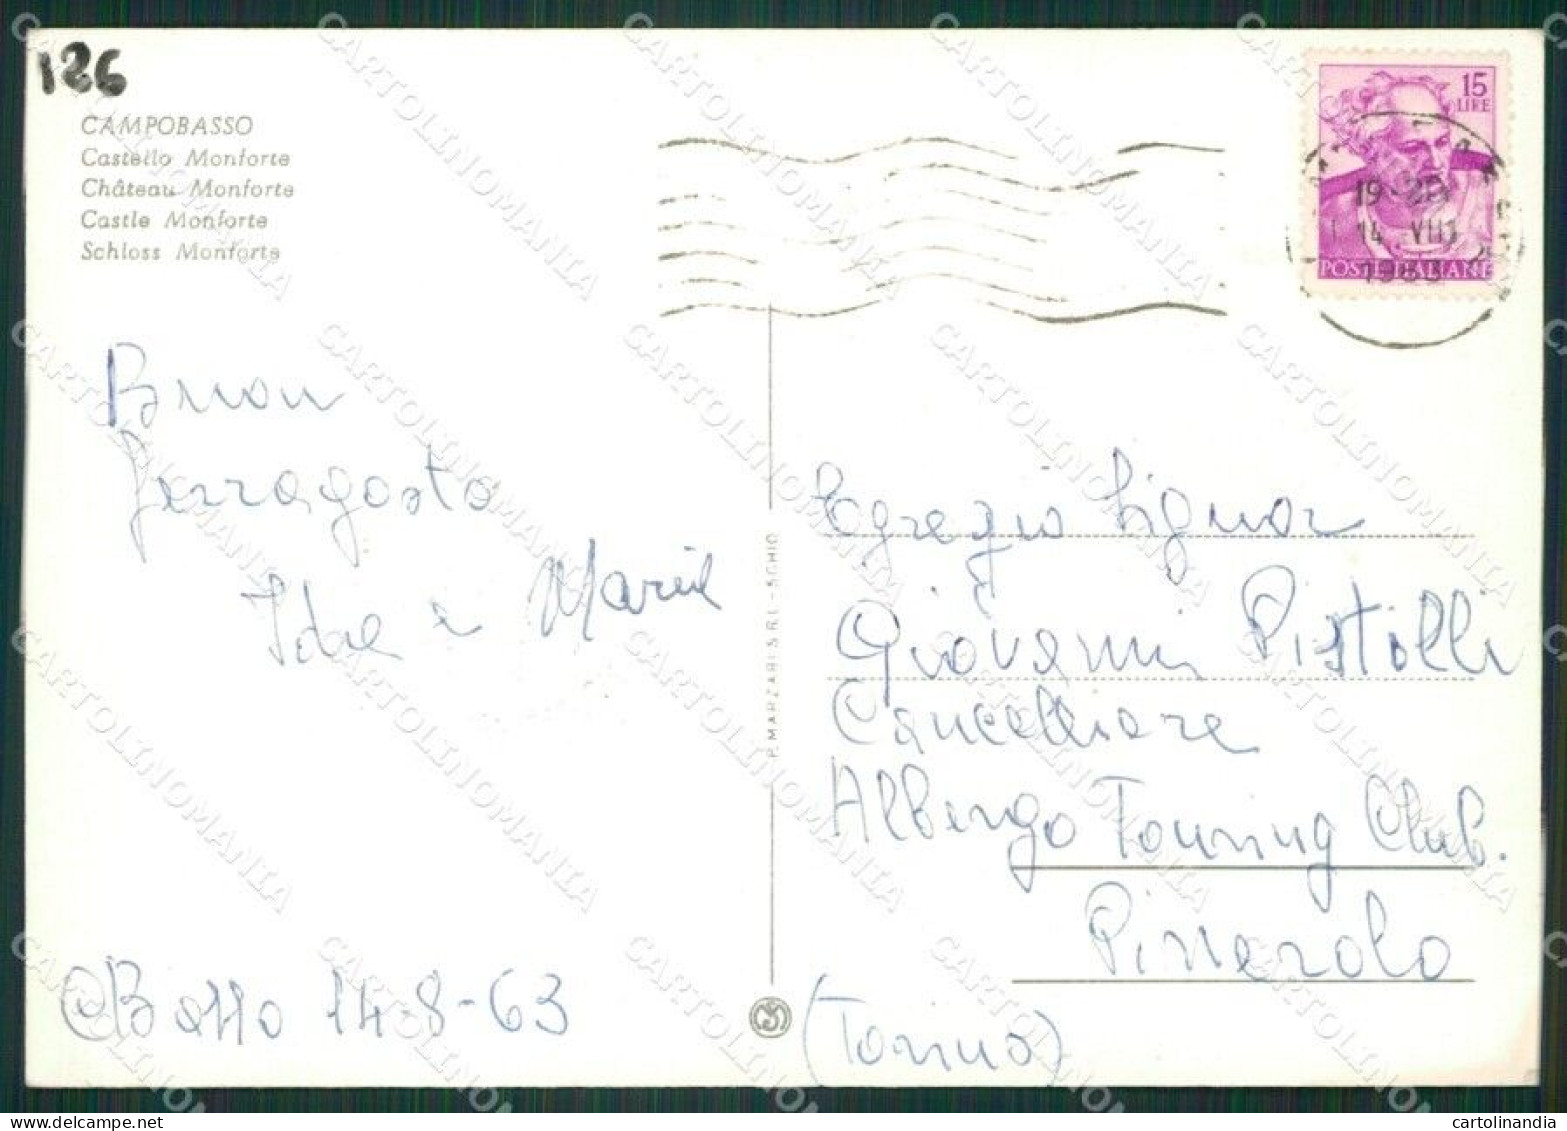 186
CAMPOBASSO
Castello Monforte
Château Monforte
Castle Monforte
Schloss Monforte
15
LIRE
19-20
14 VIII
1963
POSTE ITALIANE
Buon
Ferragosto
Ida e Maria
CBasso 14-8-63
P. MARZARI S.R.L. - SCHIO
Egregio Signor
Giovanni Pistilli
Cancelliere
Albergo Touring Club.
Pinerolo
(Torino)
CARTOLINOMANIA
cartolinandia